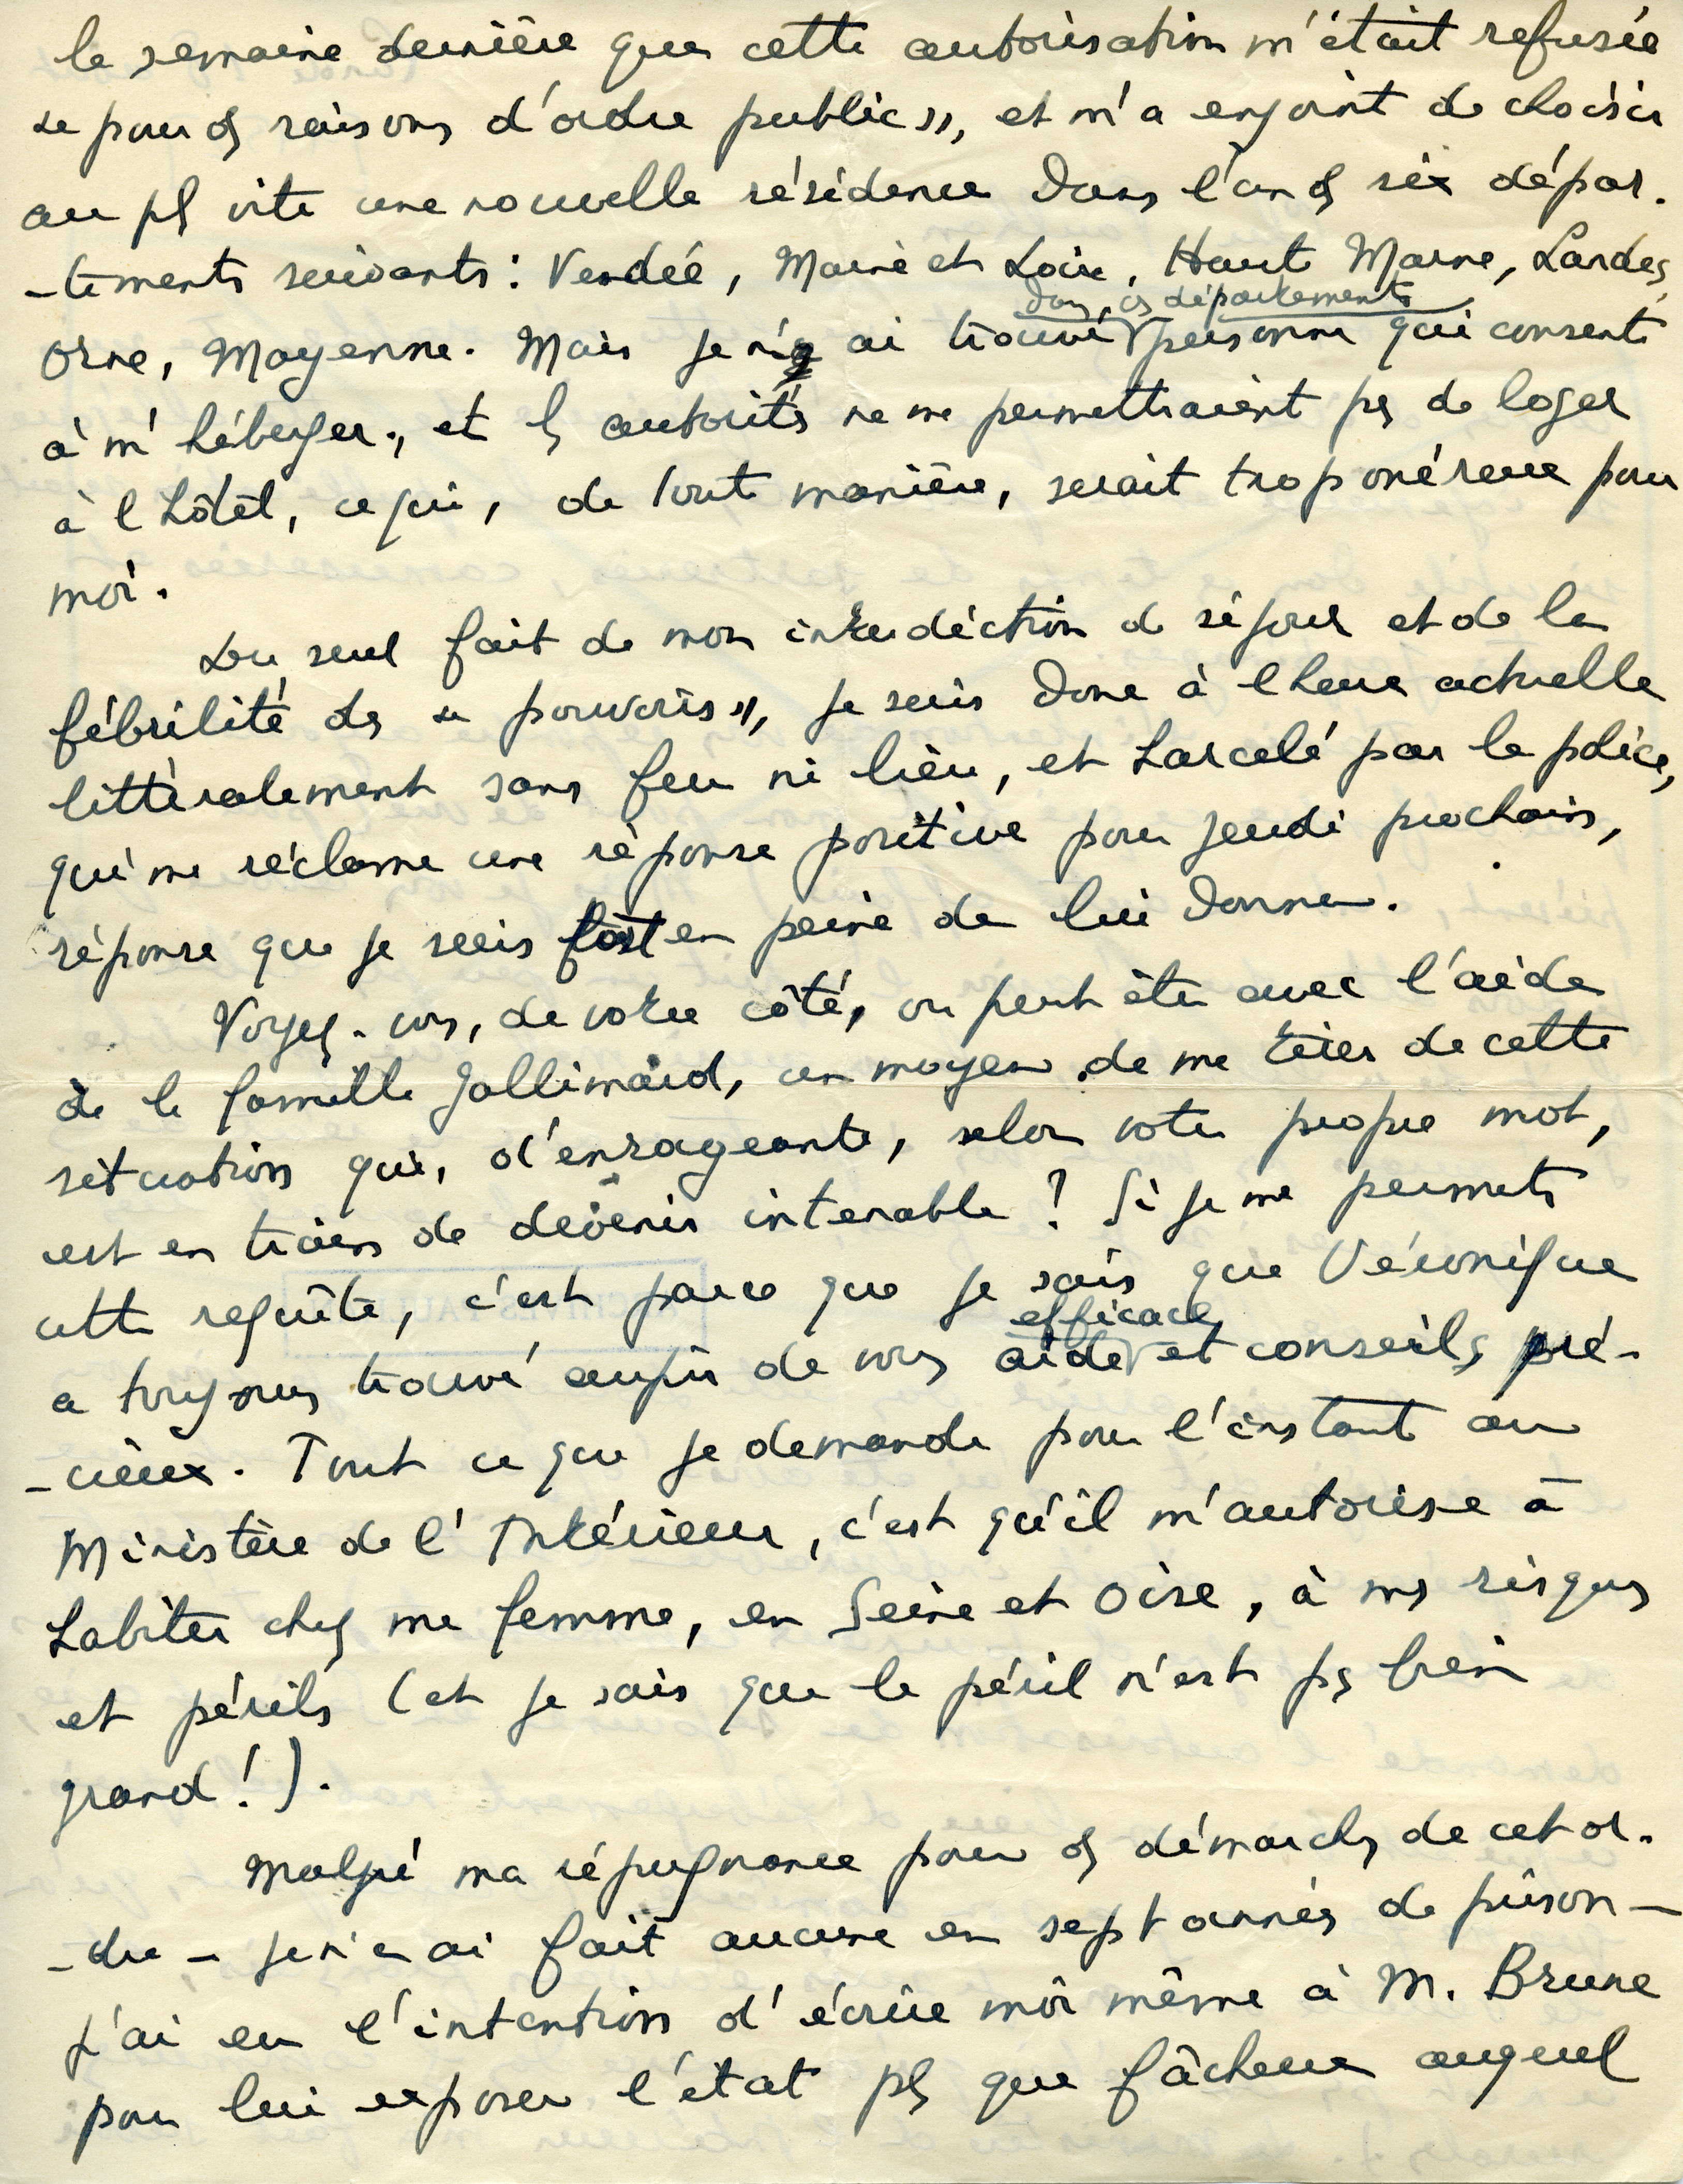 la semaine dernière que cette autorisation m'était refusée
« pour ds raisons d'ordre public », et m'a enjoint de choisir
au pls vite une nouvelle résidence dans l'un ds six dépar-
-tements suivants : Vendée, Maine et Loire, Haute Marne, Landes,
dans cs départements
Orne, Mayenne. Mais je n'y ai trouvé personne qui consente
à m'héberger, et ls autorités ne me permettraient ps de loger
à l'hôtel, ce qui, de toute manière, serait trop onéreux pour
moi.
Du seul fait de mon interdiction de séjour et de la
fébrilité ds « pouvoirs », je suis donc à l'heure actuelle
littéralement sans feu ni lieu, et harcelé par la police,
qui me réclame une réponse positive pour jeudi prochain,
réponse que je suis fort en peine de lui donner.
Voyez-vous, de votre côté, ou peut être avec l'aide
de la famille Gallimard, un moyen de me tirer de cette
situation qui, d'enrageante, selon votre propre mot,
est en train de devenir intenable ? Si je me permets
cette requête, c'est parce que je sais que Véronique
efficace
a toujours trouvé auprès de vous aide et conseils pré-
-cieux. Tout ce que je demande pour l'instant au
Ministère de l'Intérieur, c'est qu'il m'autorise à
habiter chez ma femme, en Seine et Oise, à ms risques
et périls (et je sais que le péril n'est ps bien
grand !).
Malgré ma répugnance pour ds démarches de cet or-
-dre – je n'en ai fait aucune en sept années de prison –
j'ai eu l'intention d'écrire moi même à M. Brune
pour lui exposer l'état pls que fâcheux auquel